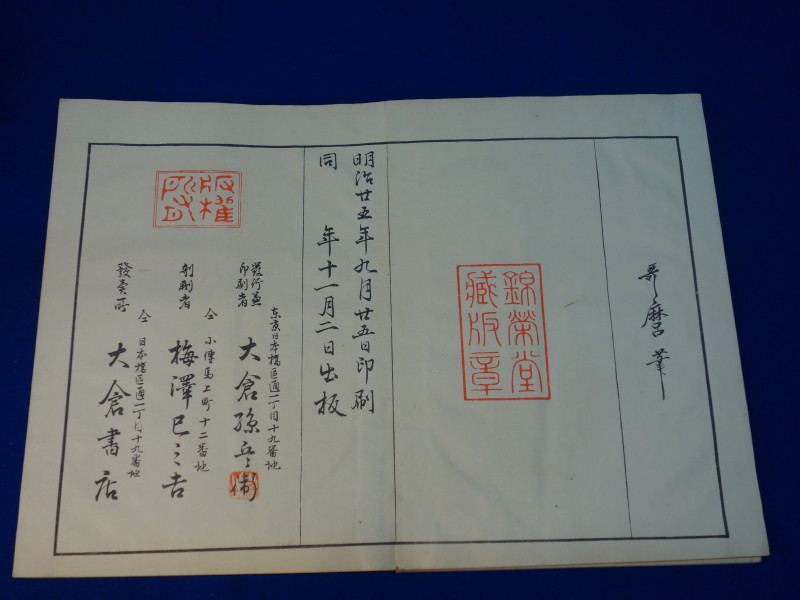 哥麿筆
錦榮堂
藏版章
明治廿五年九月廿五日印刷
同 年十一月二日出板
版權所有
東京日本橋區通一丁目十九番地
發行兼
印刷者
大倉孫兵衞
仝 小傳馬上町十二番地
彫刻者
梅澤巳之吉
仝 日本橋區通一丁目十九番地
發賣所
大倉書店